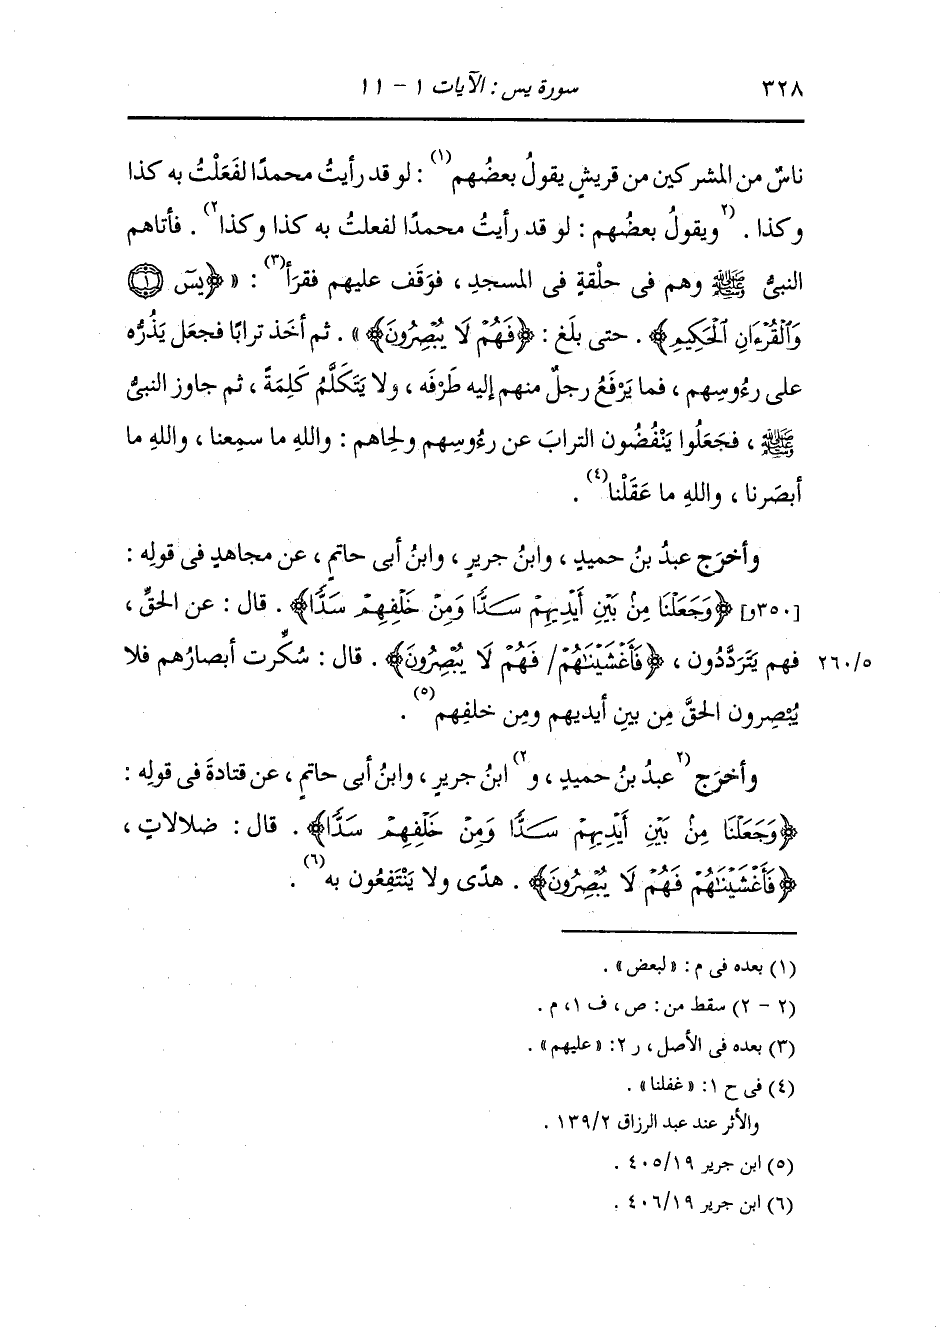 ٣٢٨ سورة يس : الآيات ١ - ١١
ناسٌ من المشركين من قريشٍ يقولُ بعضُهم(١) : لو قد رأيتُ محمدًا لفَعَلْتُ به كذا
وكذا . (٢ويقولُ بعضُهم : لو قد رأيتُ محمدًا لفعلتُ به كذا وكذا٢) . فأتاهم
النبيُّ ﷺ وهم فى حلْقةٍ فى المسجدِ ، فوَقَف عليهم فقرَأ(٣) : « ﴿يسٓ ۝١
وَٱلْقُرْءَانِ ٱلْحَكِيمِ﴾ . حتى بلَغ : ﴿فَهُمْ لَا يُبْصِرُونَ﴾ » . ثم أخَذ ترابًا فجعَل يَذُرُّه
على رءُوسِهم ، فما يَرْفَعُ رجلٌ منهم إليه طَرْفَه ، ولا يَتَكَلَّمُ كَلِمَةً ، ثم جاوز النبىُّ
ﷺ ، فجَعَلُوا يَنْفُضُون الترابَ عن رءُوسِهم ولحِاهم : واللهِ ما سمِعنا ، واللهِ ما
أبصَرنا ، واللهِ ما عَقَلْنا(٤) .
وأخرَج عبدُ بنُ حميدٍ ، وابنُ جريرٍ ، وابنُ أبى حاتمٍ ، عن مجاهدٍ فى قولِه :
[٣٥٠و] ﴿وَجَعَلْنَا مِنۢ بَيْنِ أَيْدِيهِمْ سَكدًّا وَمِنْ خَلْفِهِمْ سَدًّا﴾ . قال : عن الحقِّ ،
فهم يَتَرَدَّدُون ، ﴿فَأَغْشَيْنَٰهُمْ/ فَهُمْ لَا يُبْصِرُونَ﴾ . قال : سُكِّرت أبصارُهم فلا ٢٦٠/٥
يُبْصِرون الحقَّ مِن بينِ أيديهم ومِن خلفِهم(٥) .
وأخرَج (٢عبدُ بنُ حميدٍ ، و٢) ابنُ جريرٍ ، وابنُ أبى حاتمٍ ، عن قتادةَ فى قولِه :
﴿وَجَعَلْنَا مِنۢ بَيْنِ أَيْدِيهِمْ سَدًّا وَمِنْ خَلْفِهِمْ سَدًّا﴾ . قال : ضلالاتٍ ،
﴿فَأَغْشَيْنَٰهُمْ فَهُمْ لَا يُبْصِرُونَ﴾ . هدًى ولا يَنْتَفِعُون به(٦) .
(١) بعده فى م : « لبعض » .
(٢ - ٢) سقط من : ص ، ف ١، م .
(٣) بعده فى الأصل ، ر ٢: « عليهم » .
(٤) فى ح ١: « غفلنا » .
والأثر عند عبد الرزاق ١٣٩/٢ .
(٥) ابن جرير ٤٠٥/١٩ .
(٦) ابن جرير ٤٠٦/١٩ .